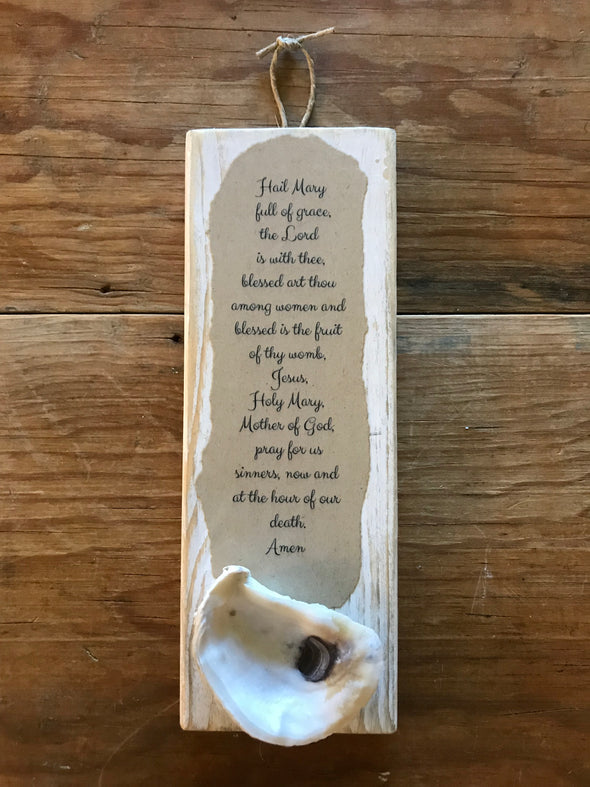 Hail Mary
full of grace,
the Lord
is with thee,
blessed art thou
among women and
blessed is the fruit
of thy womb,
Jesus,
Holy Mary,
Mother of God,
pray for us
sinners, now and
at the hour of our
death.
Amen